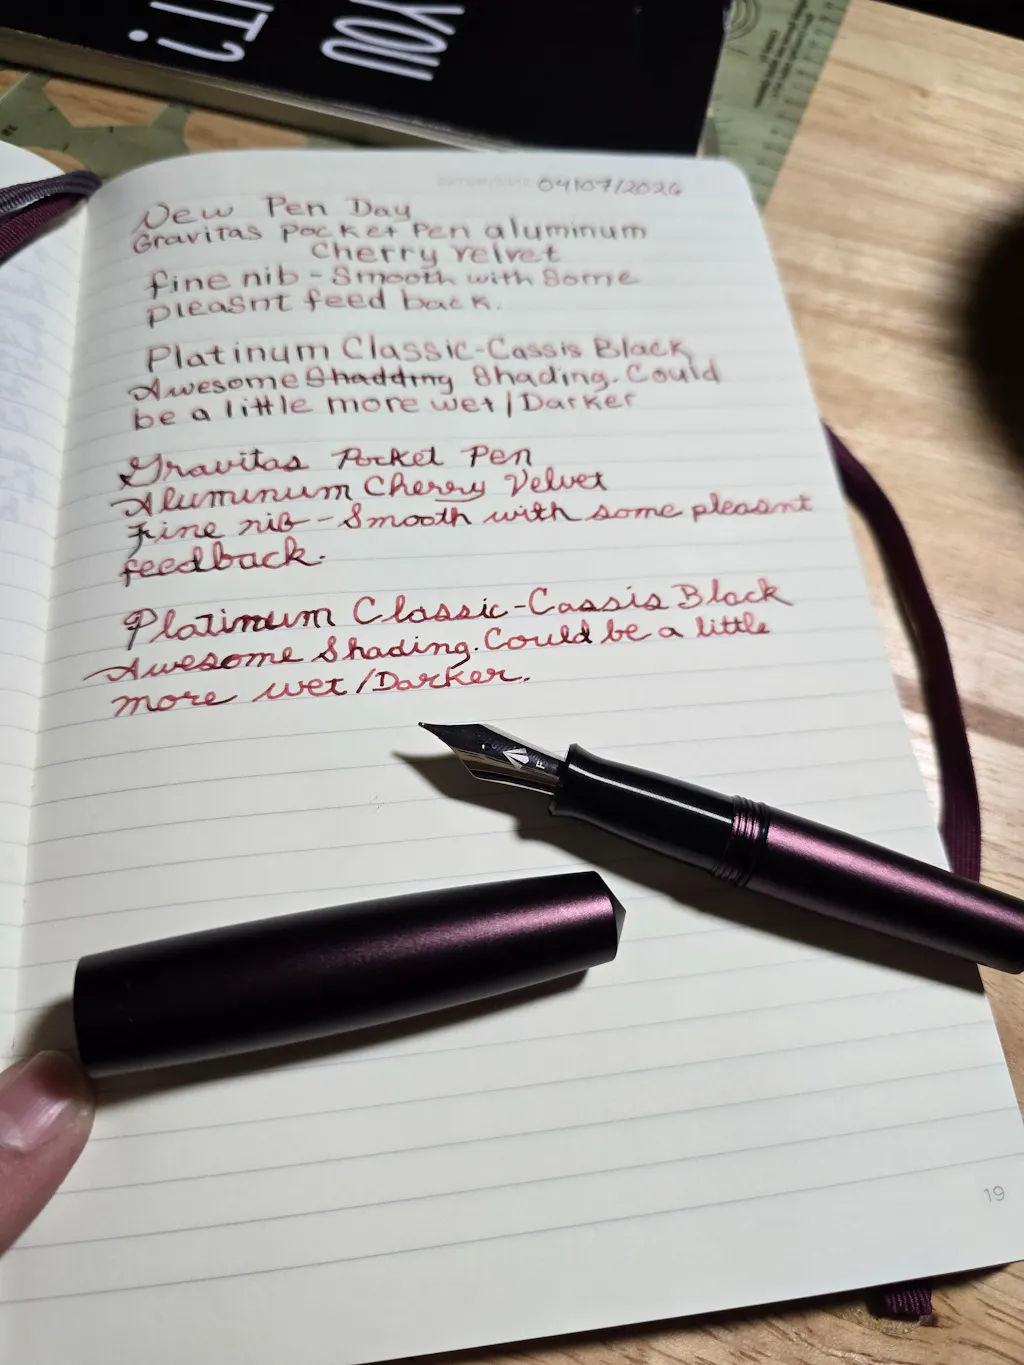 YOU
IT?
04/07/2026
New Pen Day
Gravitas Pocket Pen aluminum
Cherry velvet
fine nib - Smooth with Some
pleasnt feed back.
Platinum Classic-Cassis Black
Awesome Shadding Shading. Could
be a little more wet/Darker
Gravitas Pocket Pen
Aluminum Cherry Velvet
Fine nib - Smooth with some pleasant
feedback.
Platinum Classic-Cassis Black
Awesome Shading. Could be a little
more wet/Darker.
F
19